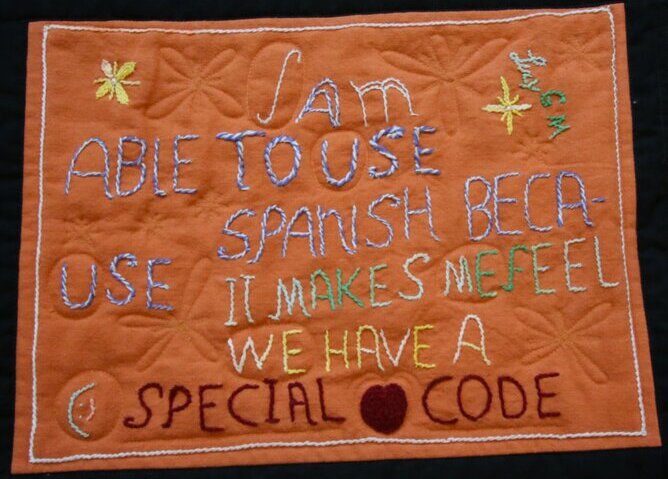 I am
ABLE TO USE
SPANISH BECA-
USE IT MAKES ME FEEL
WE HAVE A
SPECIAL CODE